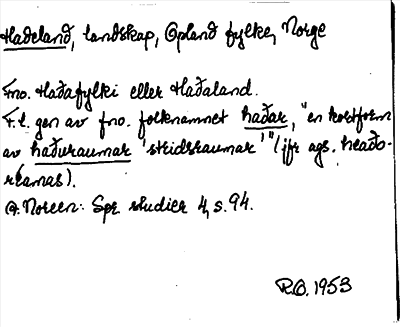 Hadeland, landskap, Opland fylke, Norge
Fno. Haðafylki eller Haðaland.
F.l. gen av fno. folknamnet haðar, "en kortform
av haðuraumar 'stridsraumar'" (jfr ags. heaðo-
réamas).
A. Noreen: Spr. studier 4, s. 94.
R.O. 1953